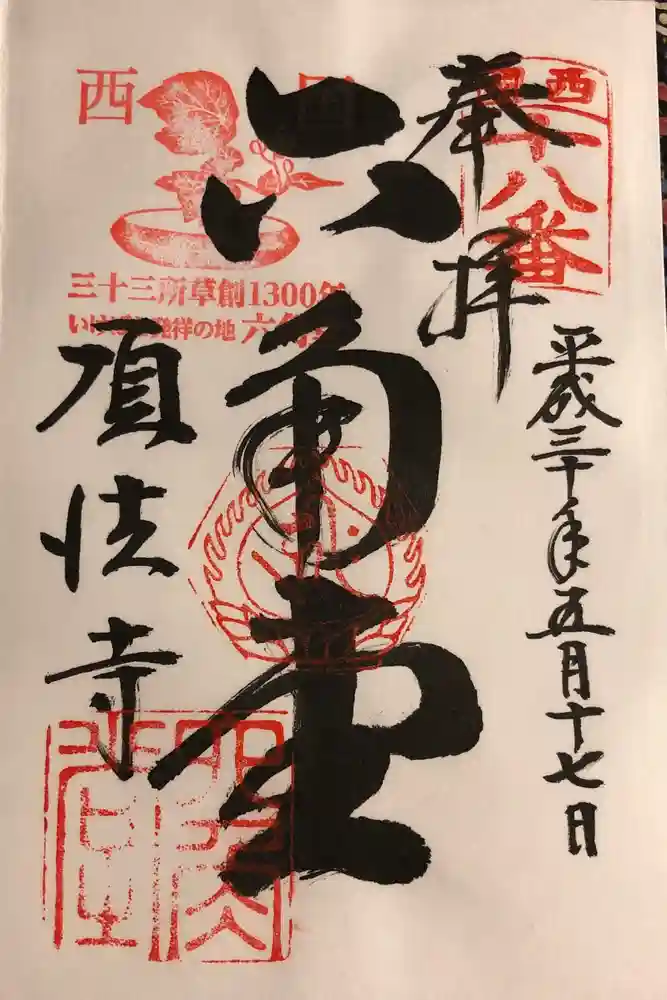 西国
十八番
奉拝
平成三十年五月十七日
西国
三十三所草創1300年
いけばな発祥の地 六角堂
六角堂
頂法寺